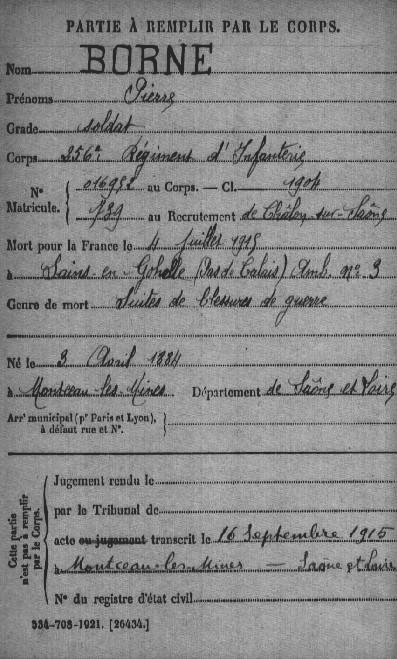 PARTIE À REMPLIR PAR LE CORPS.
Nom BORNE
Prénoms Pierre
Grade soldat
Corps 256e Régiment d'Infanterie
N° Matricule. { 016952 au Corps. — Cl. 1904
739 au Recrutement de Châlon-sur-Saône
Mort pour la France le 4 juillet 1915
à Sains-en-Gohelle (Pas de Calais) Amb. n° 3
Genre de mort Suites de blessures de guerre
Né le 3 Avril 1884
à Montceau-les-Mines Département de Saône et Loire
Arrt municipal (pr Paris et Lyon),
à défaut rue et N°.
Cette partie n'est pas à remplir par le Corps.
Jugement rendu le
par le Tribunal de
acte ou jugement transcrit le 16 Septembre 1915
à Montceau-les-Mines — Saône et Loire
N° du registre d'état civil
534-708-1921. [26434.]